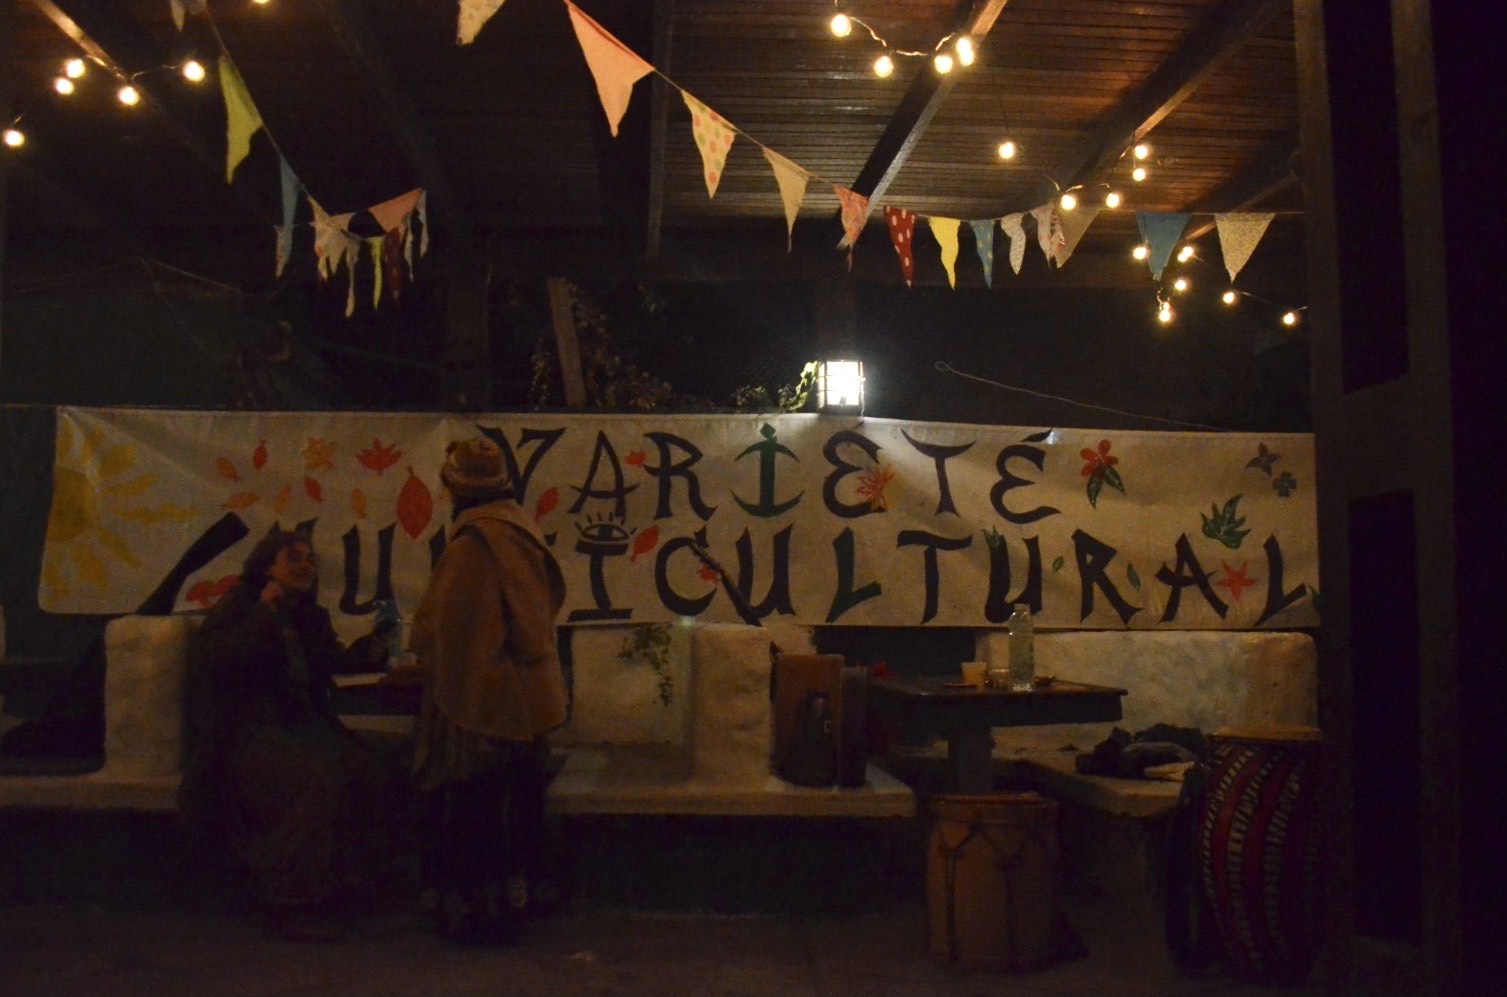 VARIETÉ
MULTICULTURAL